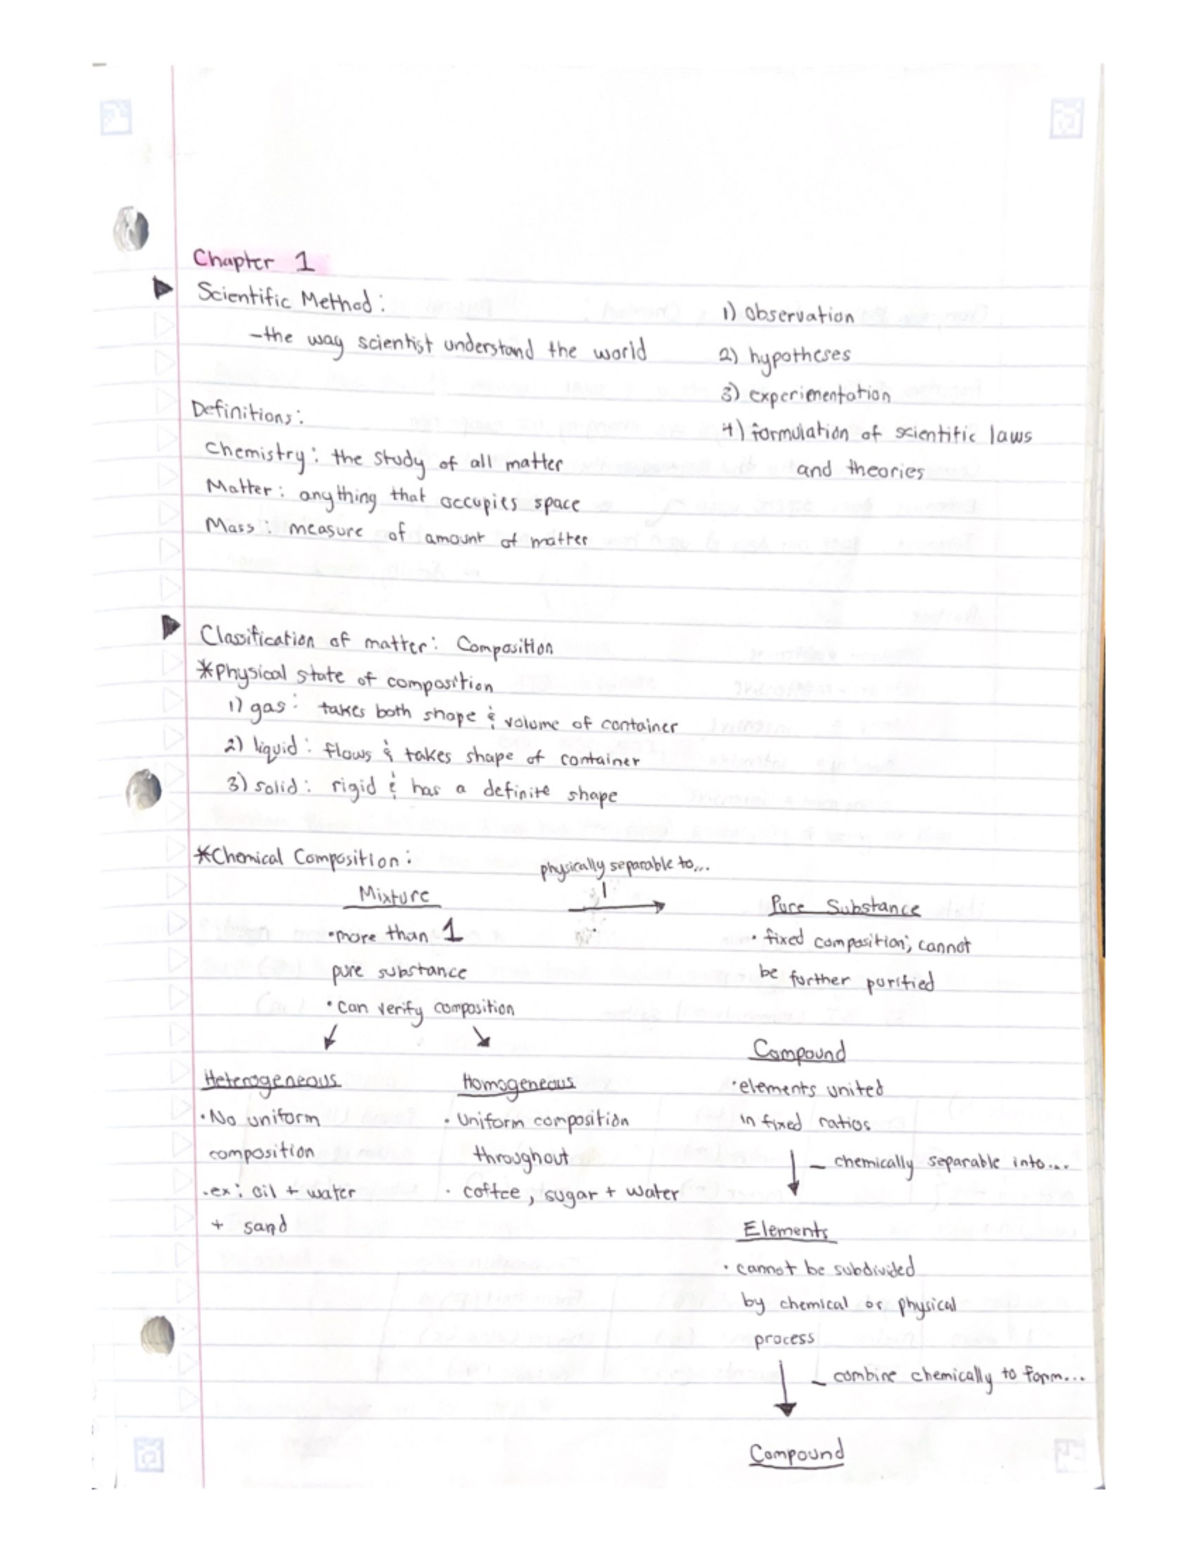 Chapter 1
Scientific Method:
-the way scientist understand the world
1) observation
2) hypotheses
3) experimentation
4) formulation of scientific laws
and theories
Definitions:
Chemistry: the study of all matter
Matter: anything that occupies space
Mass: measure of amount of matter
Classification of matter: Composition
*Physical state of composition
1) gas: takes both shape & volume of container
2) liquid: flows & takes shape of container
3) solid: rigid & has a definite shape
*Chemical Composition:
physically separable to...
Mixture
•more than 1
pure substance
•can verify composition
Pure Substance
• fixed composition; cannot
be further purified
Heterogeneous
•No uniform
composition
•ex: oil + water
+ sand
Homogeneous
• Uniform composition
throughout
• coffee, sugar + water
Compound
•elements united
in fixed ratios
- chemically separable into...
Elements
• cannot be subdivided
by chemical or physical
process
- combine chemically to form...
Compound